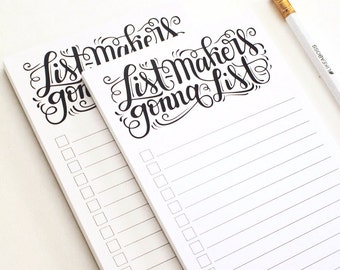 List-makers
gonna List
List-makers
gonna List